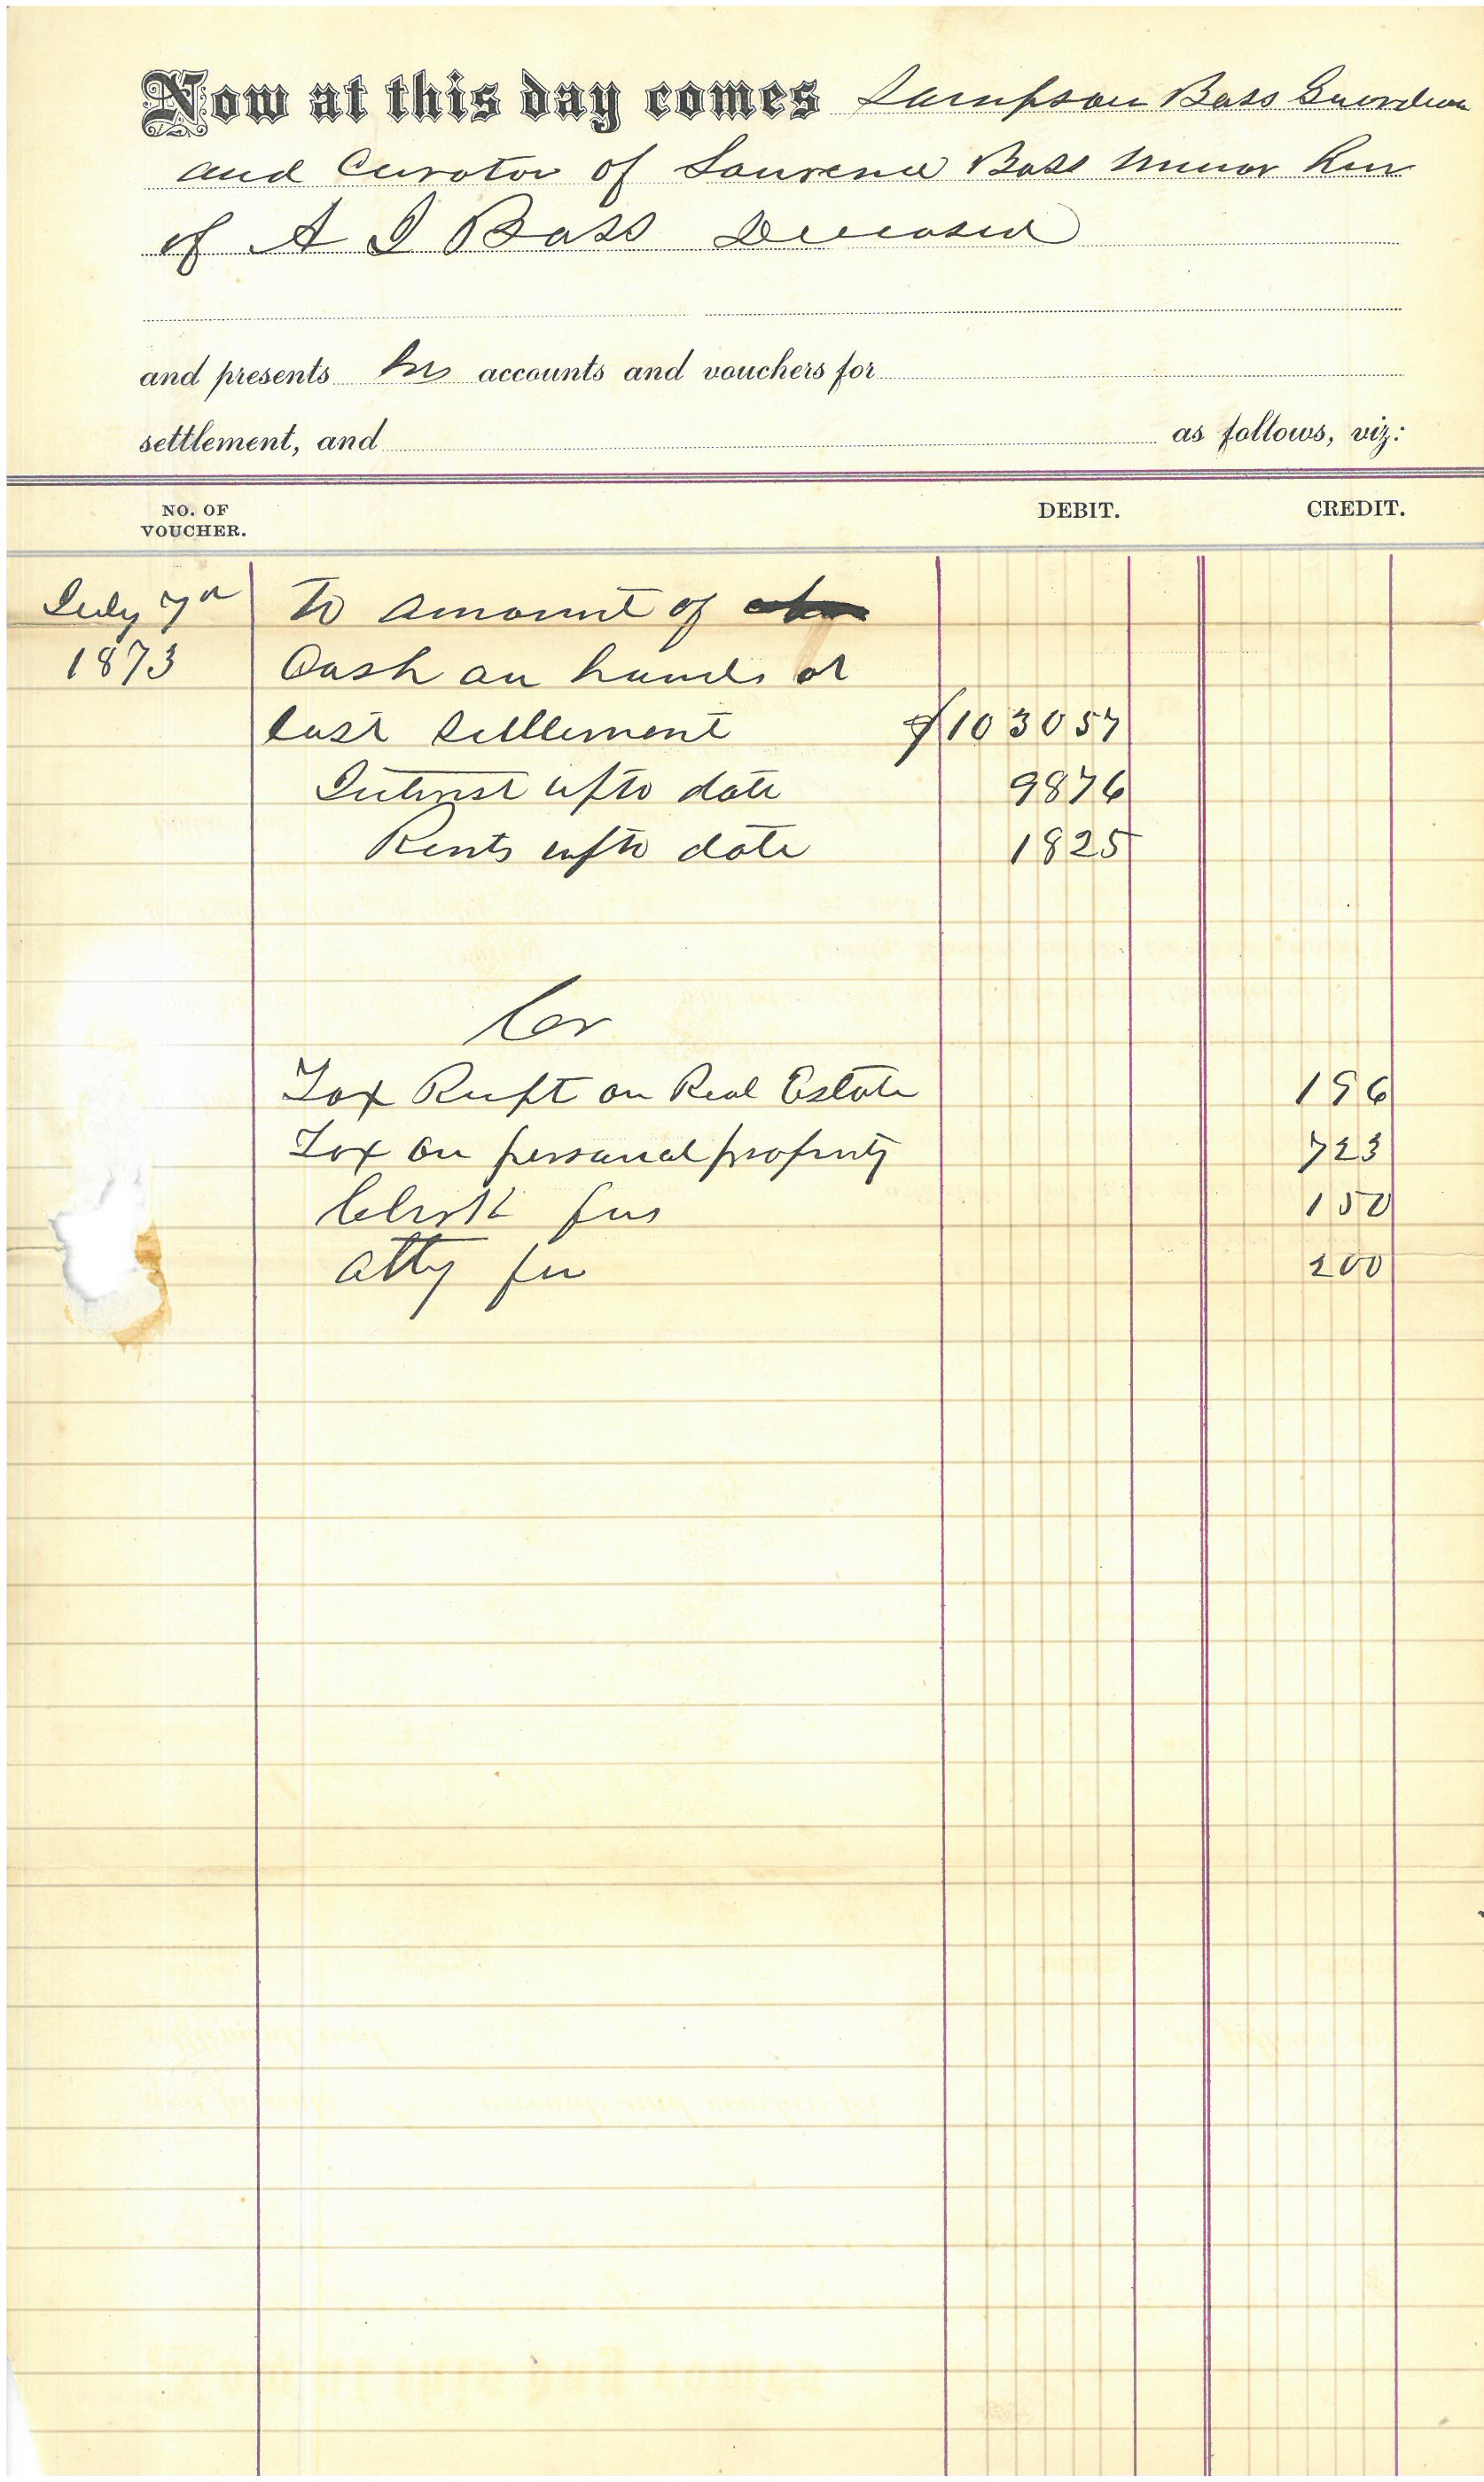 Now at this day comes Sampson Bass Guardian
and Curator of Laurence Bass Minor heir
of A J Bass Deceased
and presents his accounts and vouchers for
settlement, and as follows, viz:
NO. OF VOUCHER. DEBIT. CREDIT.
July 7th To amount of
1873 Cash on hands at
last settlement $1030 57
Interest upto date 98 76
Rents upto date 18 25
Cr
Tax Recpt on Real Estate 1 96
Tax on personal property 7 23
Clerk fees 1 50
Atty fee 2 00